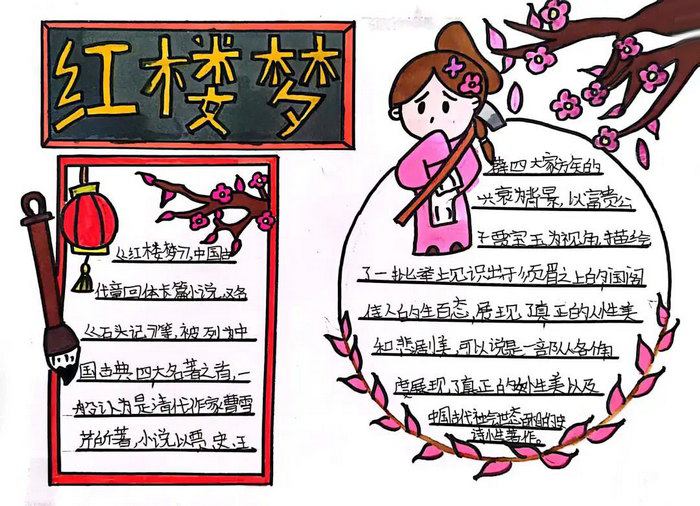 红楼梦
《红楼梦》,中国古
代章回体长篇小说,又名
《石头记》等,被列为中
国古典四大名著之首,一
般认为是清代作家曹雪
芹所著,小说以贾、史、王
薛四大家族的
兴衰为背景,以富贵公
子贾宝玉为视角,描绘
了一批举止见识出于须眉之上的闺阁
佳人的人生百态,展现了真正的人性美
和悲剧美,可以说是一部从各个角
度展现了真正的女性美以及
中国古代社会世态百相的史
诗性著作。